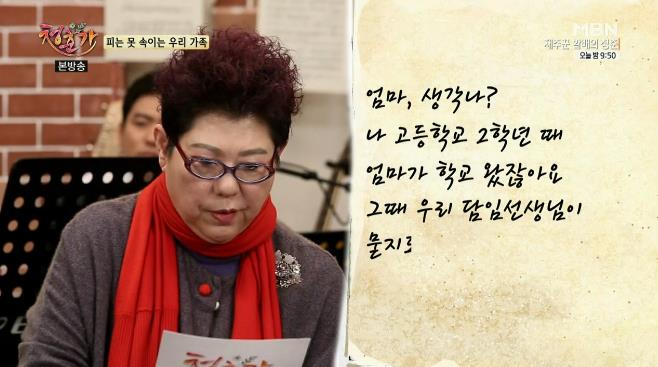 청춘가
본방송
피는 못 속이는 우리 가족
MBN
재주꾼 알배의 청춘
오늘 밤 9:50
엄마, 생각나?
나 고등학교 2학년 때
엄마가 학교 왔잖아요
그때 우리 담임선생님이
물지로
청춘가